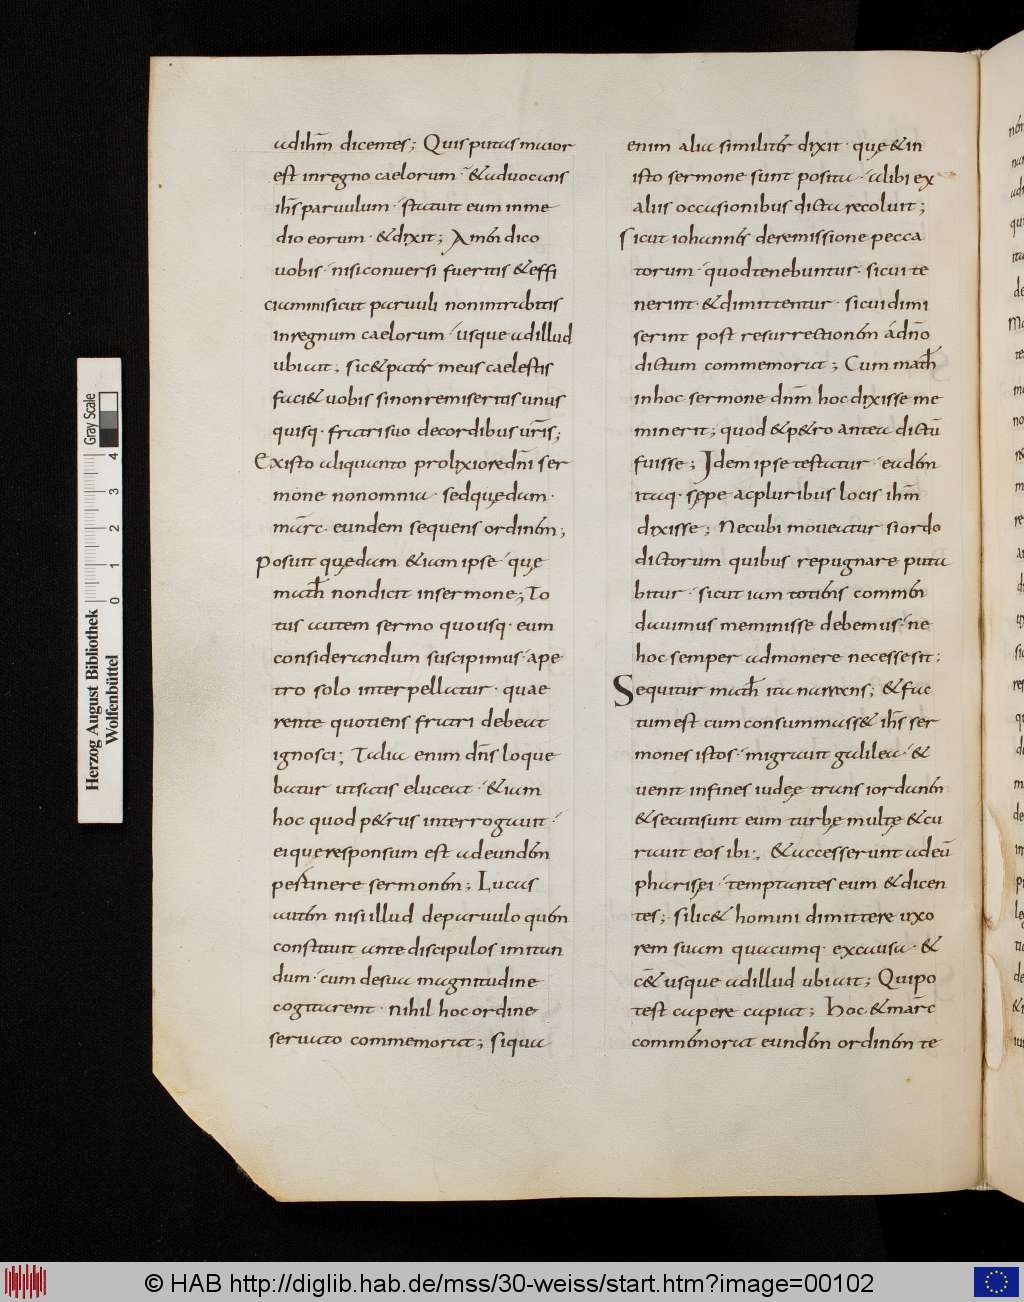 adihm̄ dicentes; Quis putas maior
est inregno caelorum · &aduocans
ih̄s paruulum · statuit eum inme
dio eorum · &dixit; Amen dico
uobis · nisi conuersi fueritis &effi
ciamini sicut paruuli non intrabitis
inregnum caelorum · usque adillud
ubi ait; sic&pater meus caelestis
faci& uobis sinon remiseritis unus
quisq· fratri suo decordibus ur̄is;
Exısto aliquanto prolixiore dn̄i ser
mone nonomnia · sed quędam ·
mar̄c · eundem sequens ordinem;
Posuit quędam &iam ipse · quę
math̄ nondicit insermone; To
tus autem sermo quousq· eum
considerandum suscipimus · ape
tro solo interpellatur · quae
rente quotiens fratri debeat
ignosci; Talia enim dn̄s loque
batur ut satis eluceat · &iam
hoc quod p&rus interrogauit ·
eique responsum est adeundem
pertinere sermonem; Lucas
autem nisi illud deparuulo quem
constituit ante discipulos imitan
dum · cum desua magnitudine
cogitarent · nihil hoc ordine
seruato commemorat; siqua
enim alia similiter dixit · quę &in
isto sermone sunt posita · alibi ex
aliis occasionibus dicta recoluit;
Sicut iohannes deremissione pecca
torum · quod tenebuntur · sicui te
nerint · &dimittentur · sicui dimi
serint post resurrectionem adn̄o
dictum commemorat; Cum math̄
inhoc sermone dn̄m hoc dixisse me
minerit; quod &p&ro antea dictū
fuisse; Idem ipse testatur · eadem
itaq· sępe ac pluribus locis ih̄m
dixisse; Necubi moueatur si ordo
dictorum quibus repugnare puta
bitur · sicut iam totiens commen
dauimus meminisse debemus · ne
hoc semper admonere necesse sit;
Sequitur math̄ ita narrans; &fac
tum est cum consummass& ih̄s ser
mones istos · migrauit galilea · &
uenit infines iudeę trans iordanen
&secutisunt eum turbę multę &cu
rauit eos ibi; &accesserunt adeū
pharisęi · temptantes eum &dicen
tes; silic& homini dimittere uxo
rem suam quacumq· ex causa · &
c̄& usque adillud ubi ait; Qui po
test capere capiat; Hoc &mar̄c
commemorat eundem ordinem te
Herzog August Bibliothek
Wolfenbüttel
0 1 2 3 4
Gray Scale
© HAB http://diglib.hab.de/mss/30-weiss/start.htm?image=00102